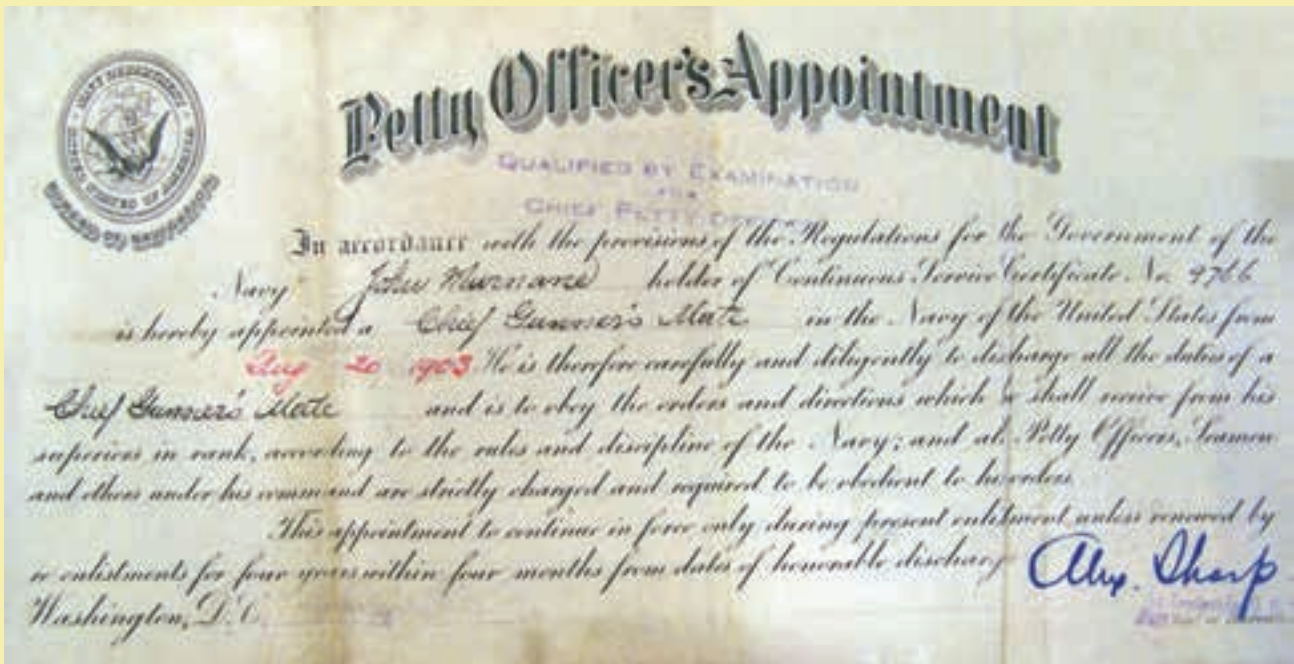 NAVY DEPARTMENT
UNITED STATES OF AMERICA
BUREAU OF NAVIGATION
Petty Officer's Appointment
QUALIFIED BY EXAMINATION
FOR
CHIEF PETTY OFFICER
In accordance with the provisions of the Regulations for the Government of the
Navy John Murnane holder of Continuous Service Certificate No. 9766
is hereby appointed a Chief Gunner's Mate in the Navy of the United States from
Aug 20 1903 He is therefore carefully and diligently to discharge all the duties of a
Chief Gunner's Mate and is to obey the orders and directions which shall receive from his
superiors in rank, according to the rules and discipline of the Navy; and al Petty Officers, Seamen
and others under his command are strictly charged and required to be obedient to his orders
This appointment to continue in force only during present enlistment unless renewed by
re enlistments for four years within four months from dates of honorable discharg
Washington, D.C.
Alex. Sharp